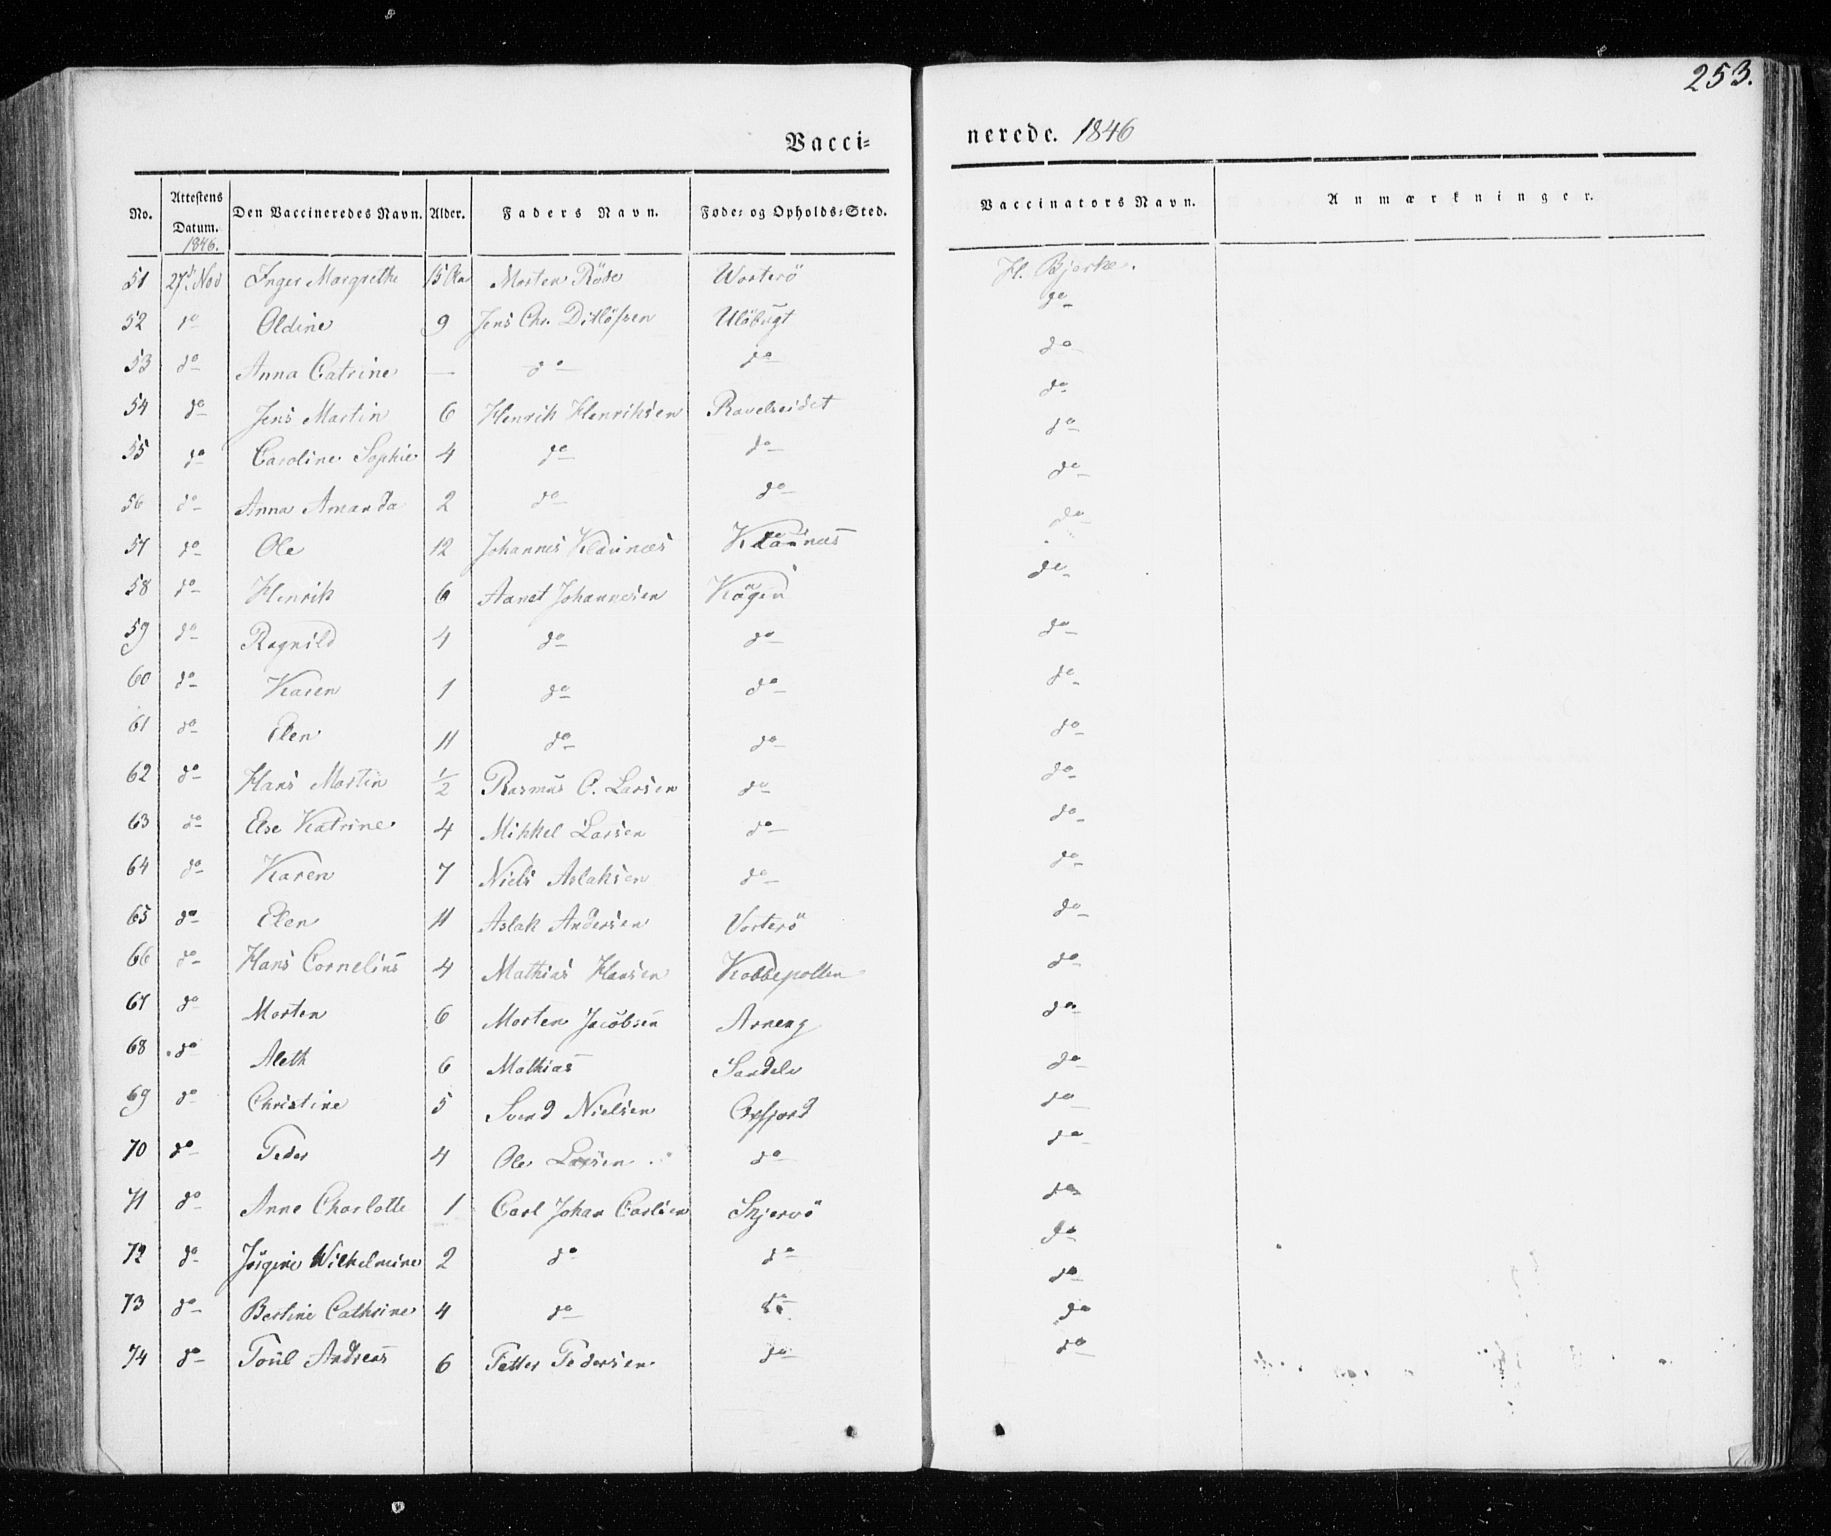 253.
Vacci= nerede. 1846
No. Attestens Datum. Den Vaccineredes Navn. Alder. Faders Navn. Føde= og Opholds=Sted. Vaccinators Navn. Anmærkninger.
1846.
51 27d Nov Inger Margrethe 15 Morten Röde Worterö H. Bjerke.
52 do Oldine 9 Jens Chr. Ditlöfsen Ulöbugt do
53 do Anna Catrine — do do do
54 do Jens Martin 6 Henrik Henriksen Ravelseidet do
55 do Caroline Sophie 4 do do do
56 do Anna Amanda 2 do do do
57 do Ole 12 Johannes Klaunæs Klaunæs do
58 do Henrik 6 Aanet Johannesen Kågen do
59 do Ragnild 4 do do do
60 do Karen 1 do do do
61 do Elen 11 do do do
62 do Hans Martin 1/2 Rasmus O. Larsen do do
63 do Else Katrine 4 Mikkel Larsen do do
64 do Karen 7 Niels Aslaksen do do
65 do Elen 11 Aslak Andersen Vorterö do
66 do Hans Cornelius 4 Mathias Hansen Kobbepollen do
67 do Morten 6 Morten Jacobsen Arneng do
68 do Aleth 6 Mathias Sandelv do
69 do Christine 5 Svend Nielsen Oxfjord do
70 do Peder 4 Ole Larsen do do
71 do Anne Charlotte 1 Carl Johan Carlsen Skjervö do
72 do Jörgine Wilhelmine 2 do do do
73 do Bertine Cathrine 4 do do do
74 do Poul Andreas 6 Petter Pedersen do do